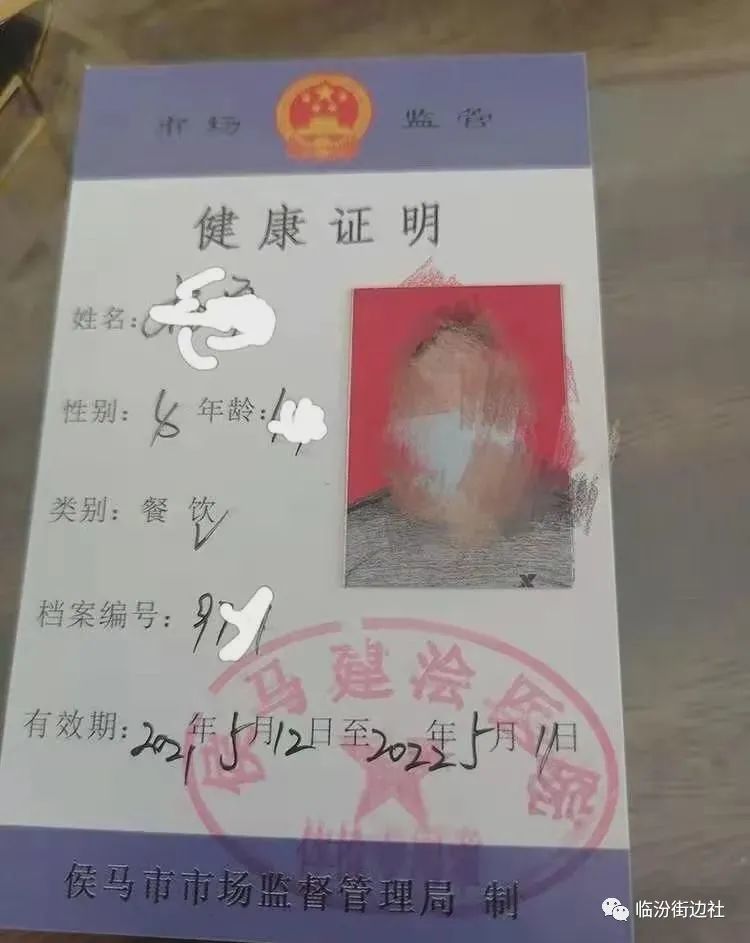 市场 监管
健康证明
姓名:
性别: 女 年龄:
类别: 餐饮
档案编号:
有效期: 2021年5月12日至2022年5月11日
侯马建浍医院
侯马市市场监督管理局 制
临汾街边社